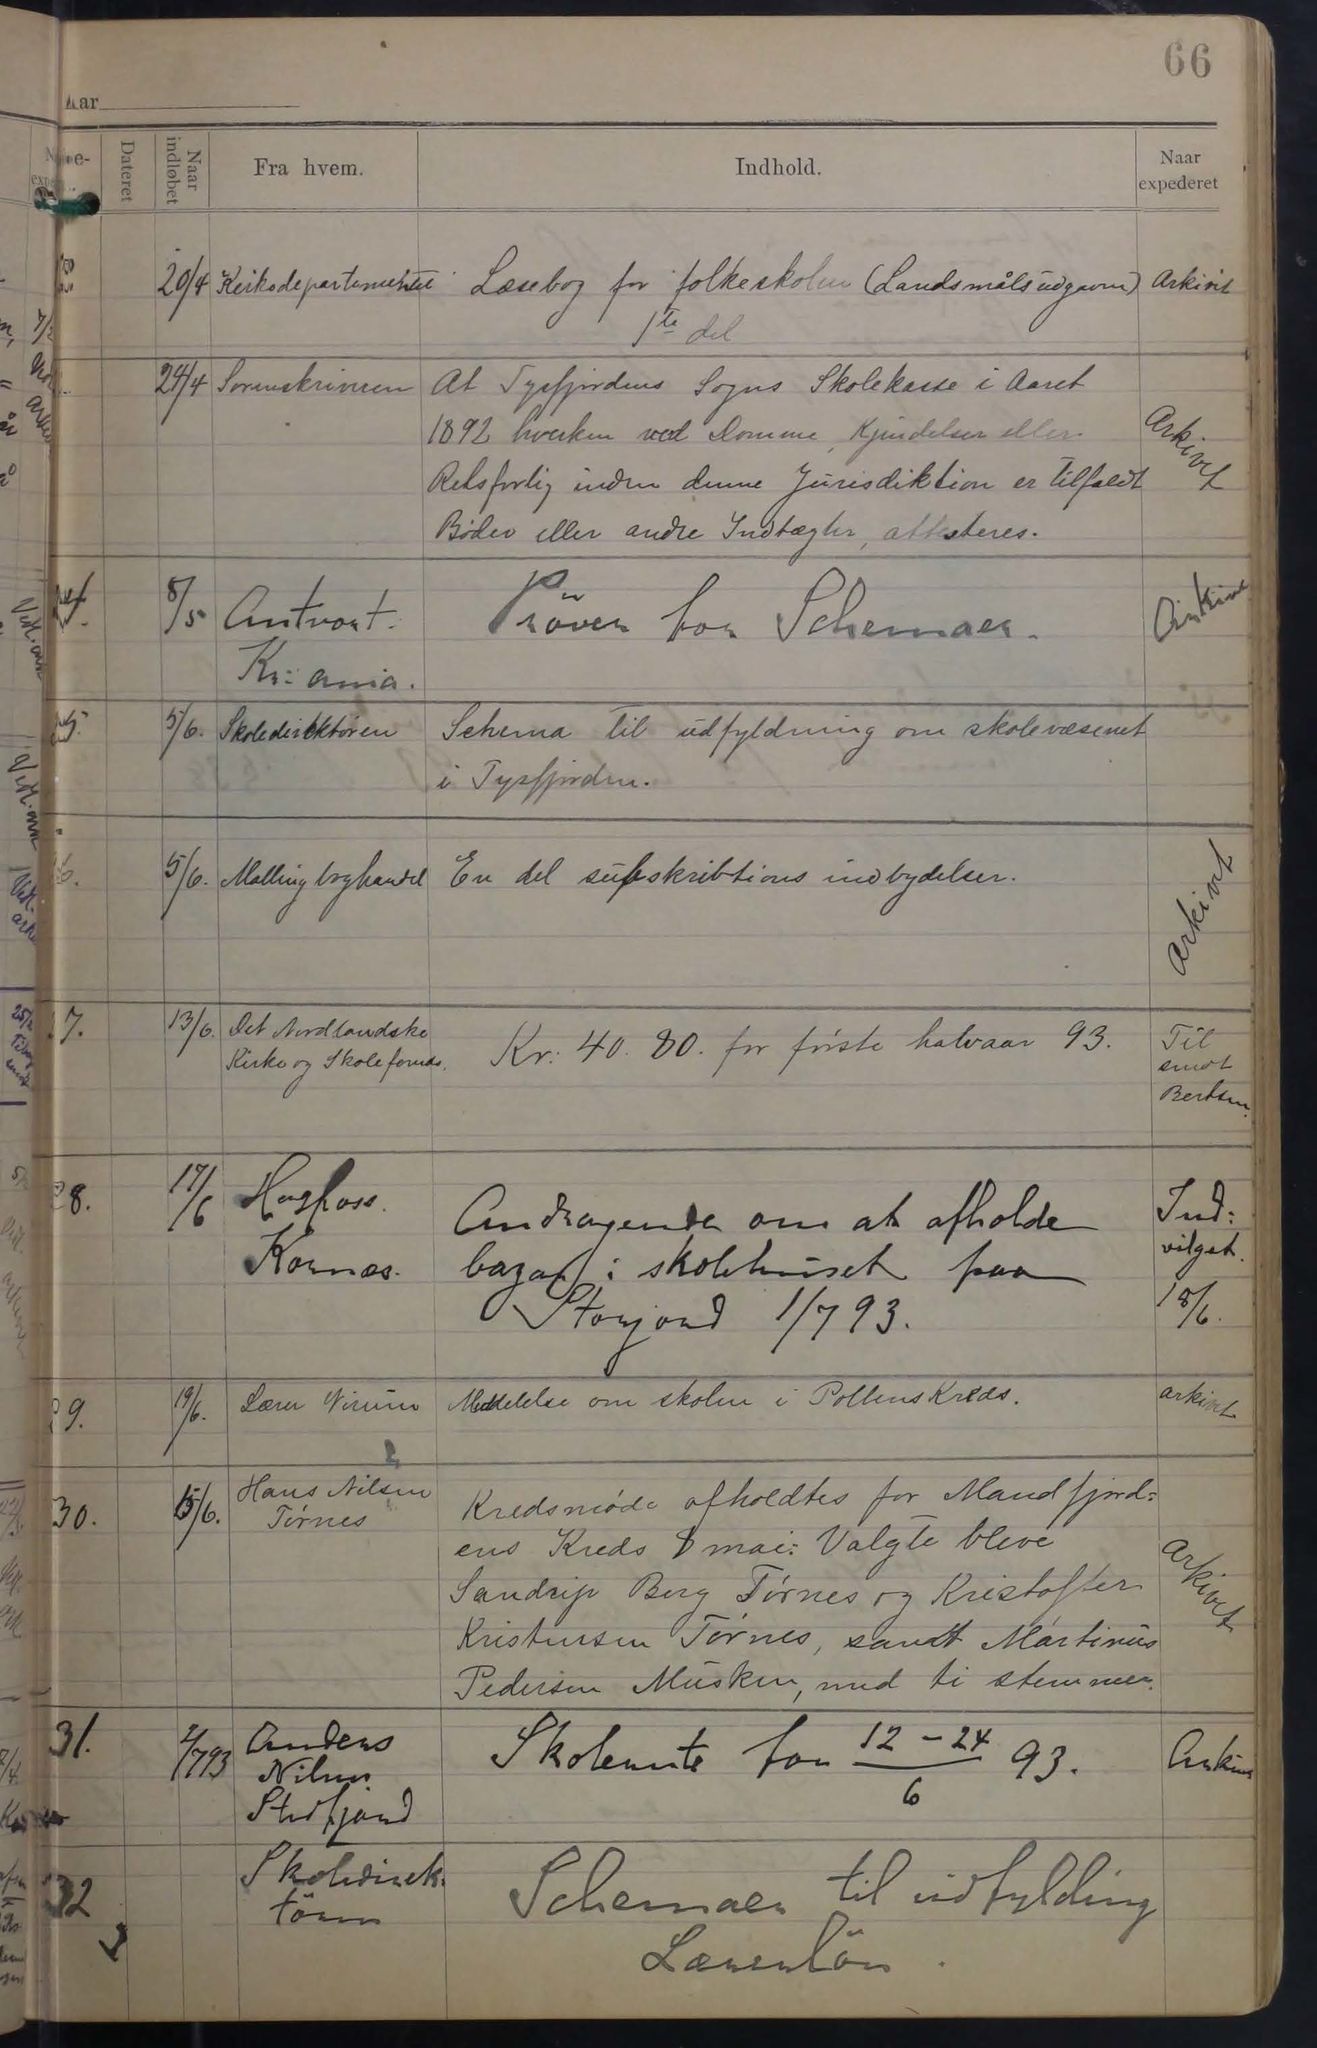 66
Aar
Dateret
Naar indløbet
Fra hvem.
Indhold.
Naar expederet
20/4 Kirkedepartementet Læsebog for folkeskolen (Landsmålsudgaven) Arkivet
1ste del
24/4 Sorenskriveren At Tysfjordens Sogns Skolekasse i Aaret
1892 hverken ved Domme, Kjendelser eller Arkivet
Retsforlig inden denne Jurisdiktion er tilfaldt
Bøder eller andre Indtægter, attesteres.
8/5 Pröver for Schemaer. Arkivet
Kr:ania.
5/6. Skoledirektøren Schema til udfyldning om skolevæsenet
i Tysfjorden.
5/6. Malling boghandel En del subskribtions indbydelser. Arkivet
7. 13/6. Det Nordlandske Kr: 40. 80. for første halvaar 93. Til
Kirke og Skolefonds. sendt
Bertsen.
28. 17/6 Andragende om at afholde Ind:
Kornæs. bazar i skolehuset paa vilget.
Storjord 1/7 93. 18/6.
29. 19/6. Lærer Meddelelse om skolen i Pollens Kreds. arkivet
30. 15/6. Hans Nilsen Kredsmøde afholdtes for Mandfjord=
Tørnes ens Kreds 8 mai: Valgte bleve Arkivet
Berg Tørnes og Kristoffer
Kristensen Tørnes, samt Martinus
Pedersen Musken, med ti stemmer.
31. 2/7 93 Anders Skolerute for 12-24/6 93. Arkivet
Nilsen
Stefjord
32 Skoledirek= Schemaer til udfylding
tören Lærerlön.